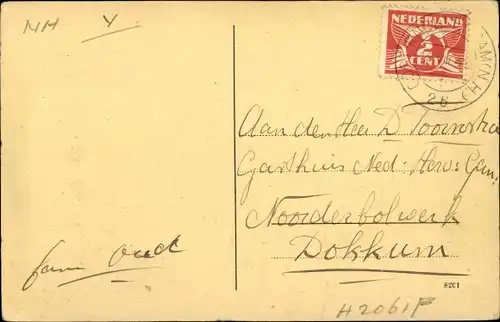 NH Y
NEDERLAND
2
CENT
26
Aan den Heer D Toornstra
Gasthuis Ned: Herv: Gem.
Noorderbolwerk
Dokkum
fam Oud
8201
H2061F